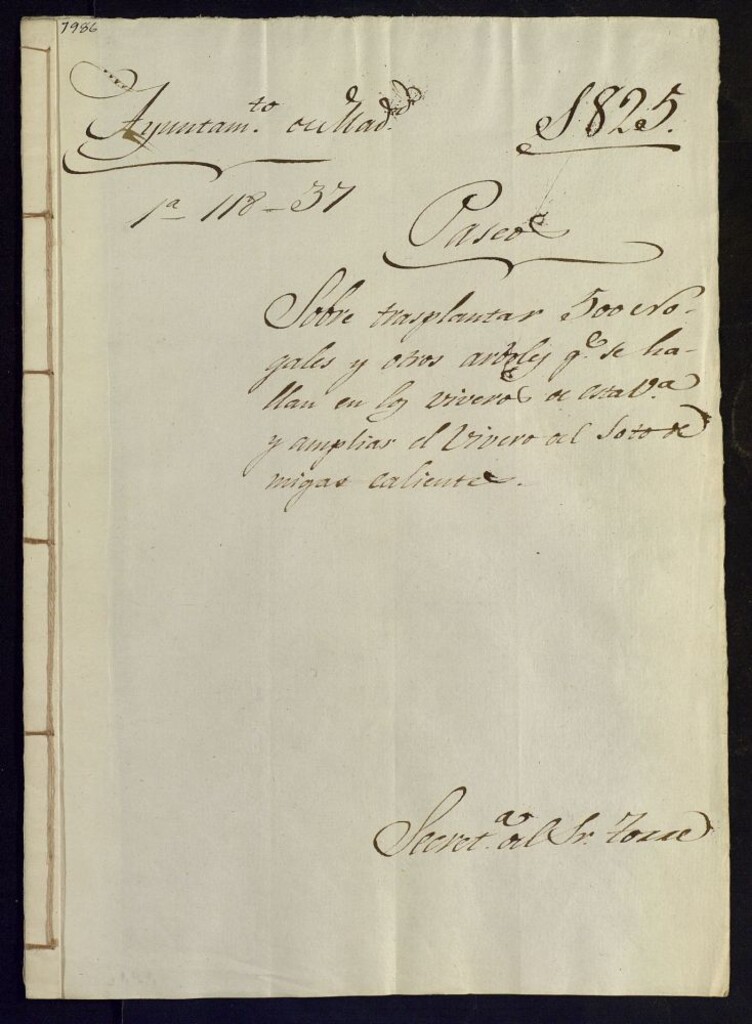 7986
Ayuntam.to de Mad.d
1825.
1a 118-37
Paseos
Sobre trasplantar 500 No-
gales y otros arboles q.e se ha-
llan en los viveros de esta V.a
y ampliar el Vivero del Soto de
migas calientes.
Secret.a del Sr.